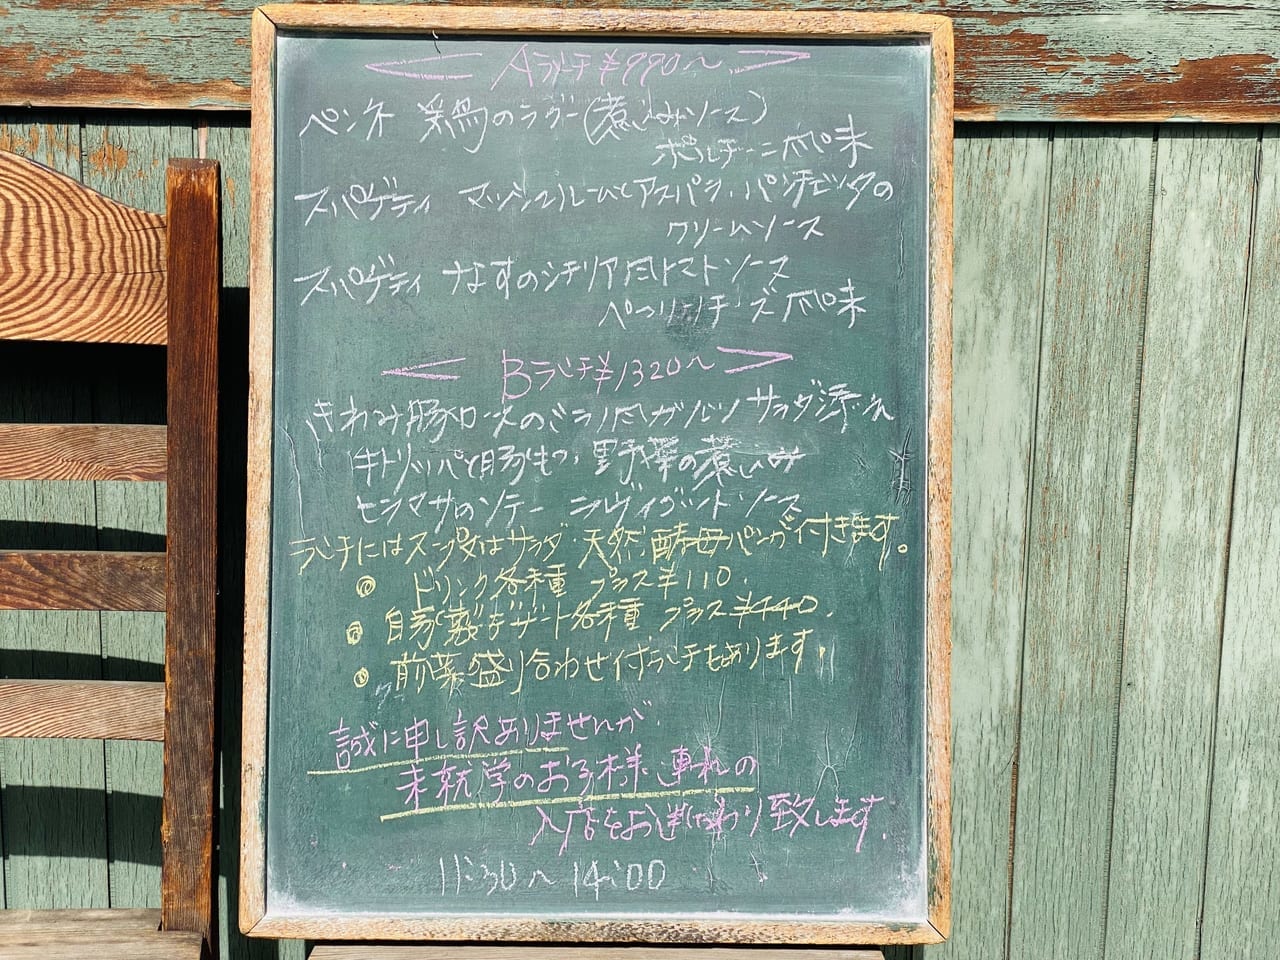 Aランチ¥990〜
ペンネ 鶏のラグー(煮込みソース)
ポルチーニ風味
スパゲティ マッシュルームとアスパラ、パンチェッタの
クリームソース
スパゲティ なすのシチリア風トマトソース
ペコリーノチーズ風味
Bランチ¥1320〜
きわみ豚ロースのミラノ風カツレツ サラダ添え
牛トリッパと豚もつ、野菜の煮込み
ヒラマサのソテー ラヴィゴットソース
ランチにはスープ又はサラダ、天然酵母パンが付きます。
◎ ドリンク各種 プラス¥110.
◎ 自家製デザート各種 プラス¥440.
◎ 前菜盛り合わせ付ランチもあります.
誠に申し訳ありませんが
未就学のお子様連れの
入店をお断わり致します.
11:30〜14:00